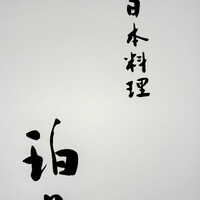 日本料理
珀